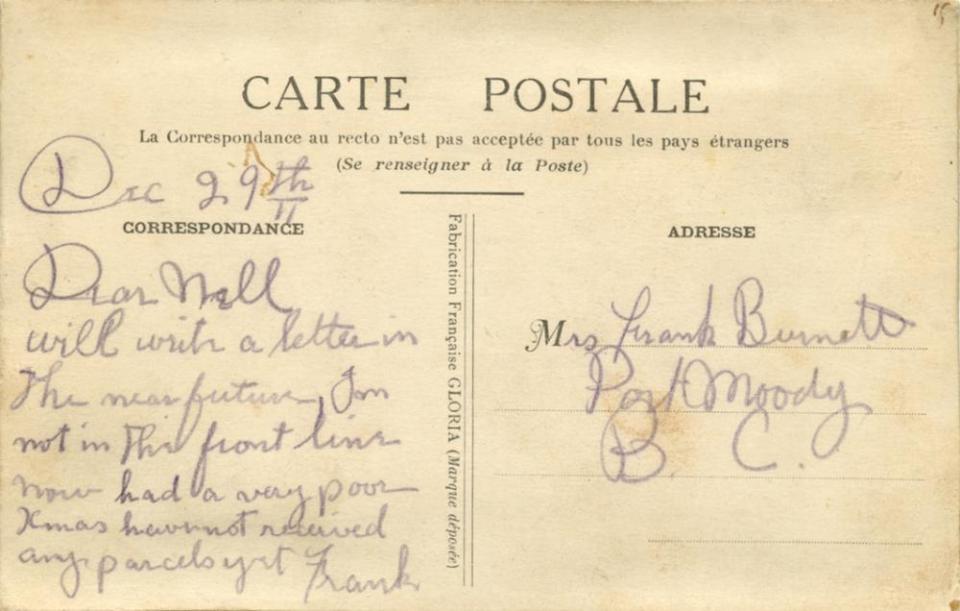 CARTE POSTALE
La Correspondance au recto n'est pas acceptée par tous les pays étrangers
(Se renseigner à la Poste)
Dec 29th
CORRESPONDANCE
Dear Nell
will write a letter in
the near future, Im
not in the front line
now had a very poor
Xmas have not received
any parcels yet Frank
Fabrication Française GLORIA (Marque déposée)
ADRESSE
Mrs Frank Burnett
Port Moody
B. C.